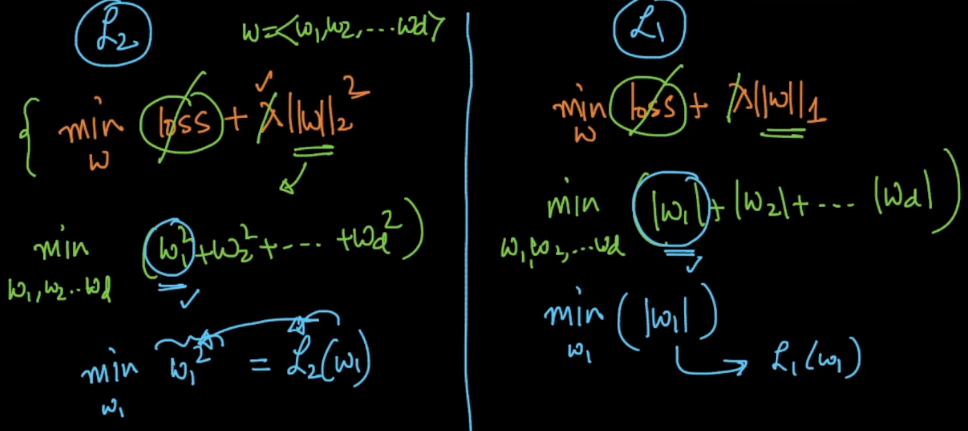 L₂
w=<w₁,w₂,...wd>
min loss + λ||w||₂²
w
min (w₁²+w₂²+....+wd²)
w₁,w₂..wd
min w₁² = L₂(w₁)
w₁
L₁
min loss + λ||w||₁
w
min (|w₁|+|w₂|+...|wd|)
w₁,w₂,...wd
min (|w₁|)
w₁
→ L₁(w₁)